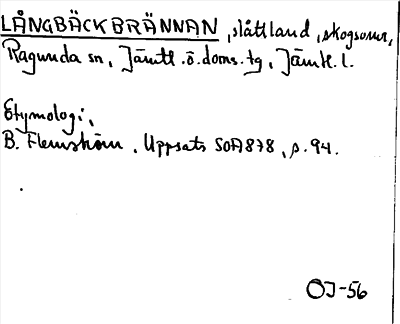 LÅNGBÄCKBRÄNNAN, slåttland, skogsomr,
Ragunda sn, Jämtl. ö. doms. tg, Jämtl. l.
Etymologi,
B. Flemström, Uppsats SOFI 878, s. 94.
OJ-56